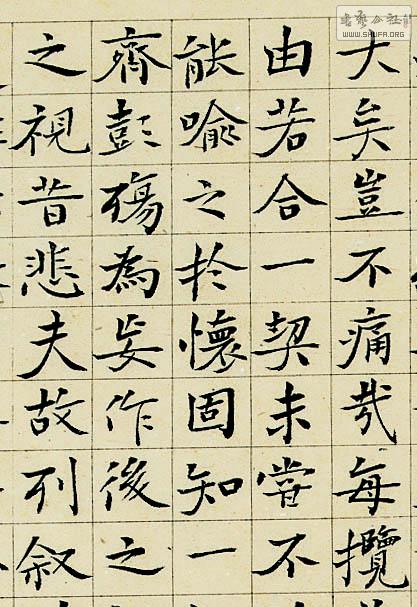 大矣豈不痛哉每攬
由若合一契未嘗不
能喻之於懷固知一
齊彭殤為妄作後之
之視昔悲夫故列叙
書藝公社
WWW.SHUFA.ORG